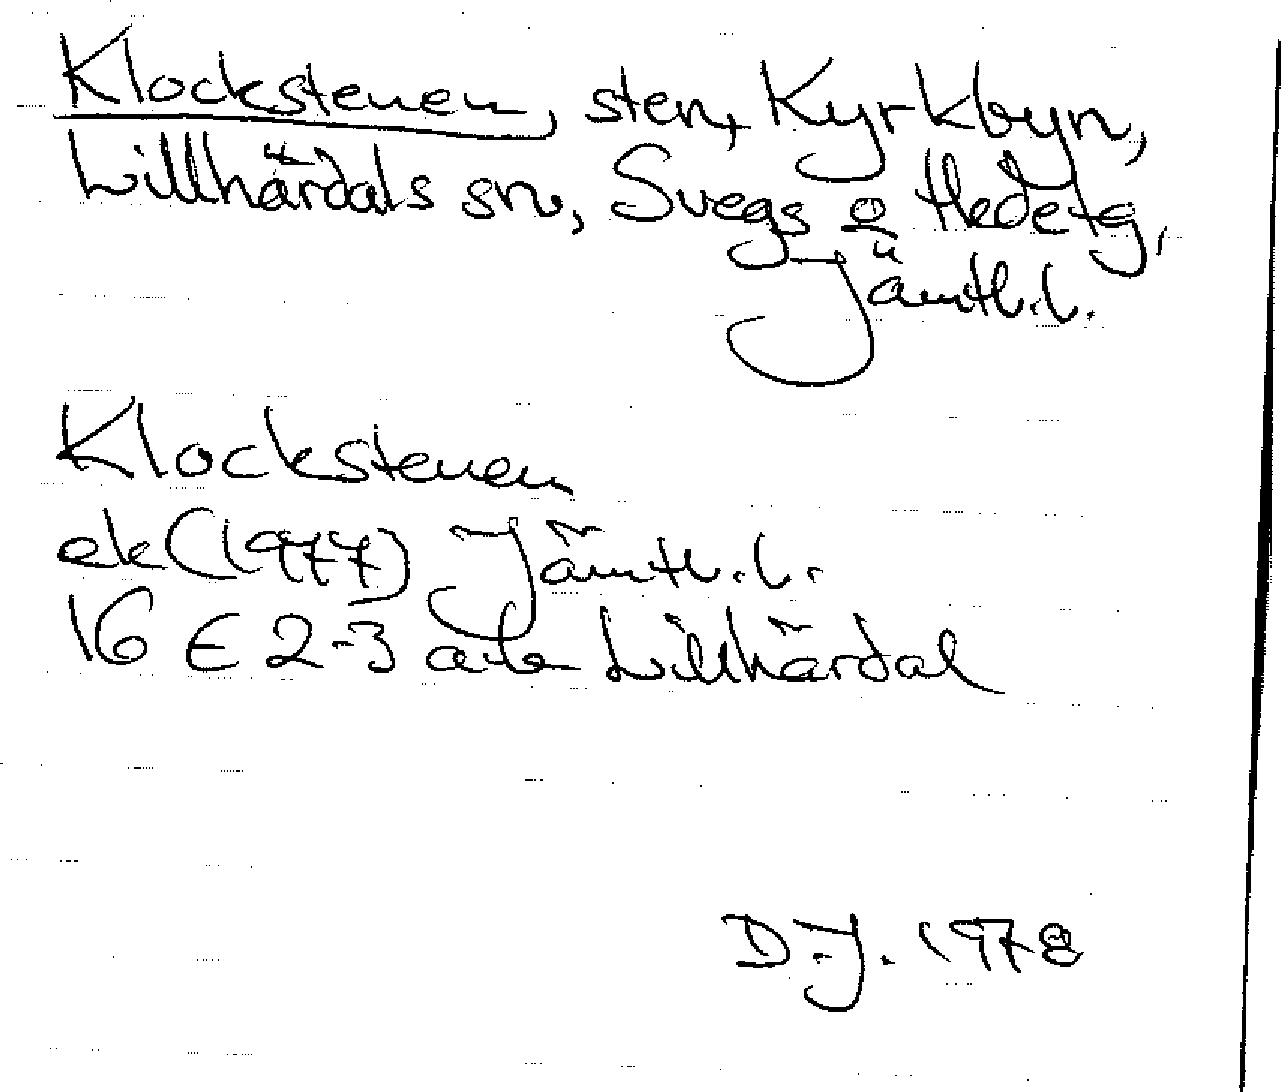 Klockstenen, sten, Kyrkbyn,
Lillhärdals sn, Svegs o Hedetg,
Jämtl.l.
Klockstenen
ek (1977) Jämtl.l.
16 E 2-3 a-b Lillhärdal
D.J. 1978